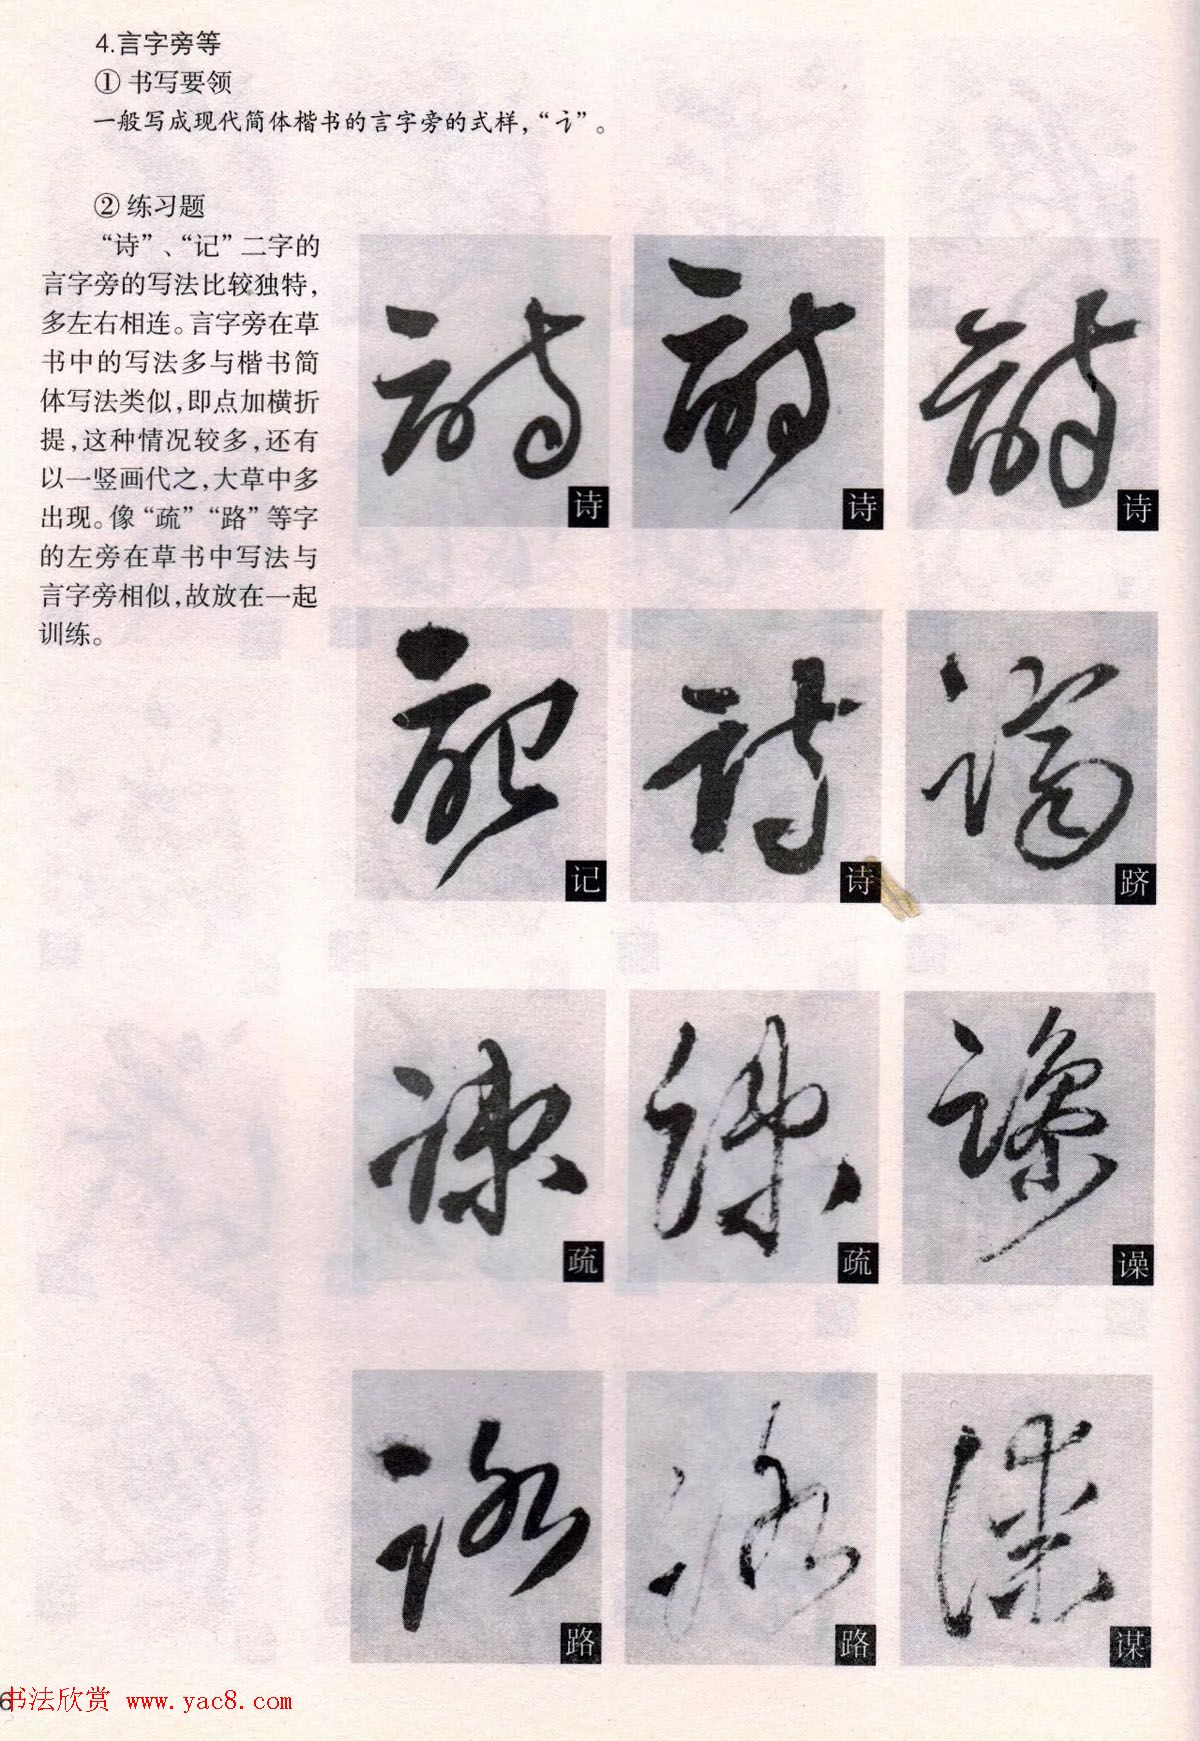 4.言字旁等
① 书写要领
一般写成现代简体楷书的言字旁的式样，“讠”。
② 练习题
“诗”、“记”二字的
言字旁的写法比较独特，
多左右相连。言字旁在草
书中的写法多与楷书简
体写法类似，即点加横折
提，这种情况较多，还有
以一竖画代之，大草中多
出现。像“疏”“路”等字
的左旁在草书中写法与
言字旁相似，故放在一起
训练。
诗 诗 诗
记 诗 跻
疏 疏 谍
路 路 谋
6
书法欣赏 www.yac8.com